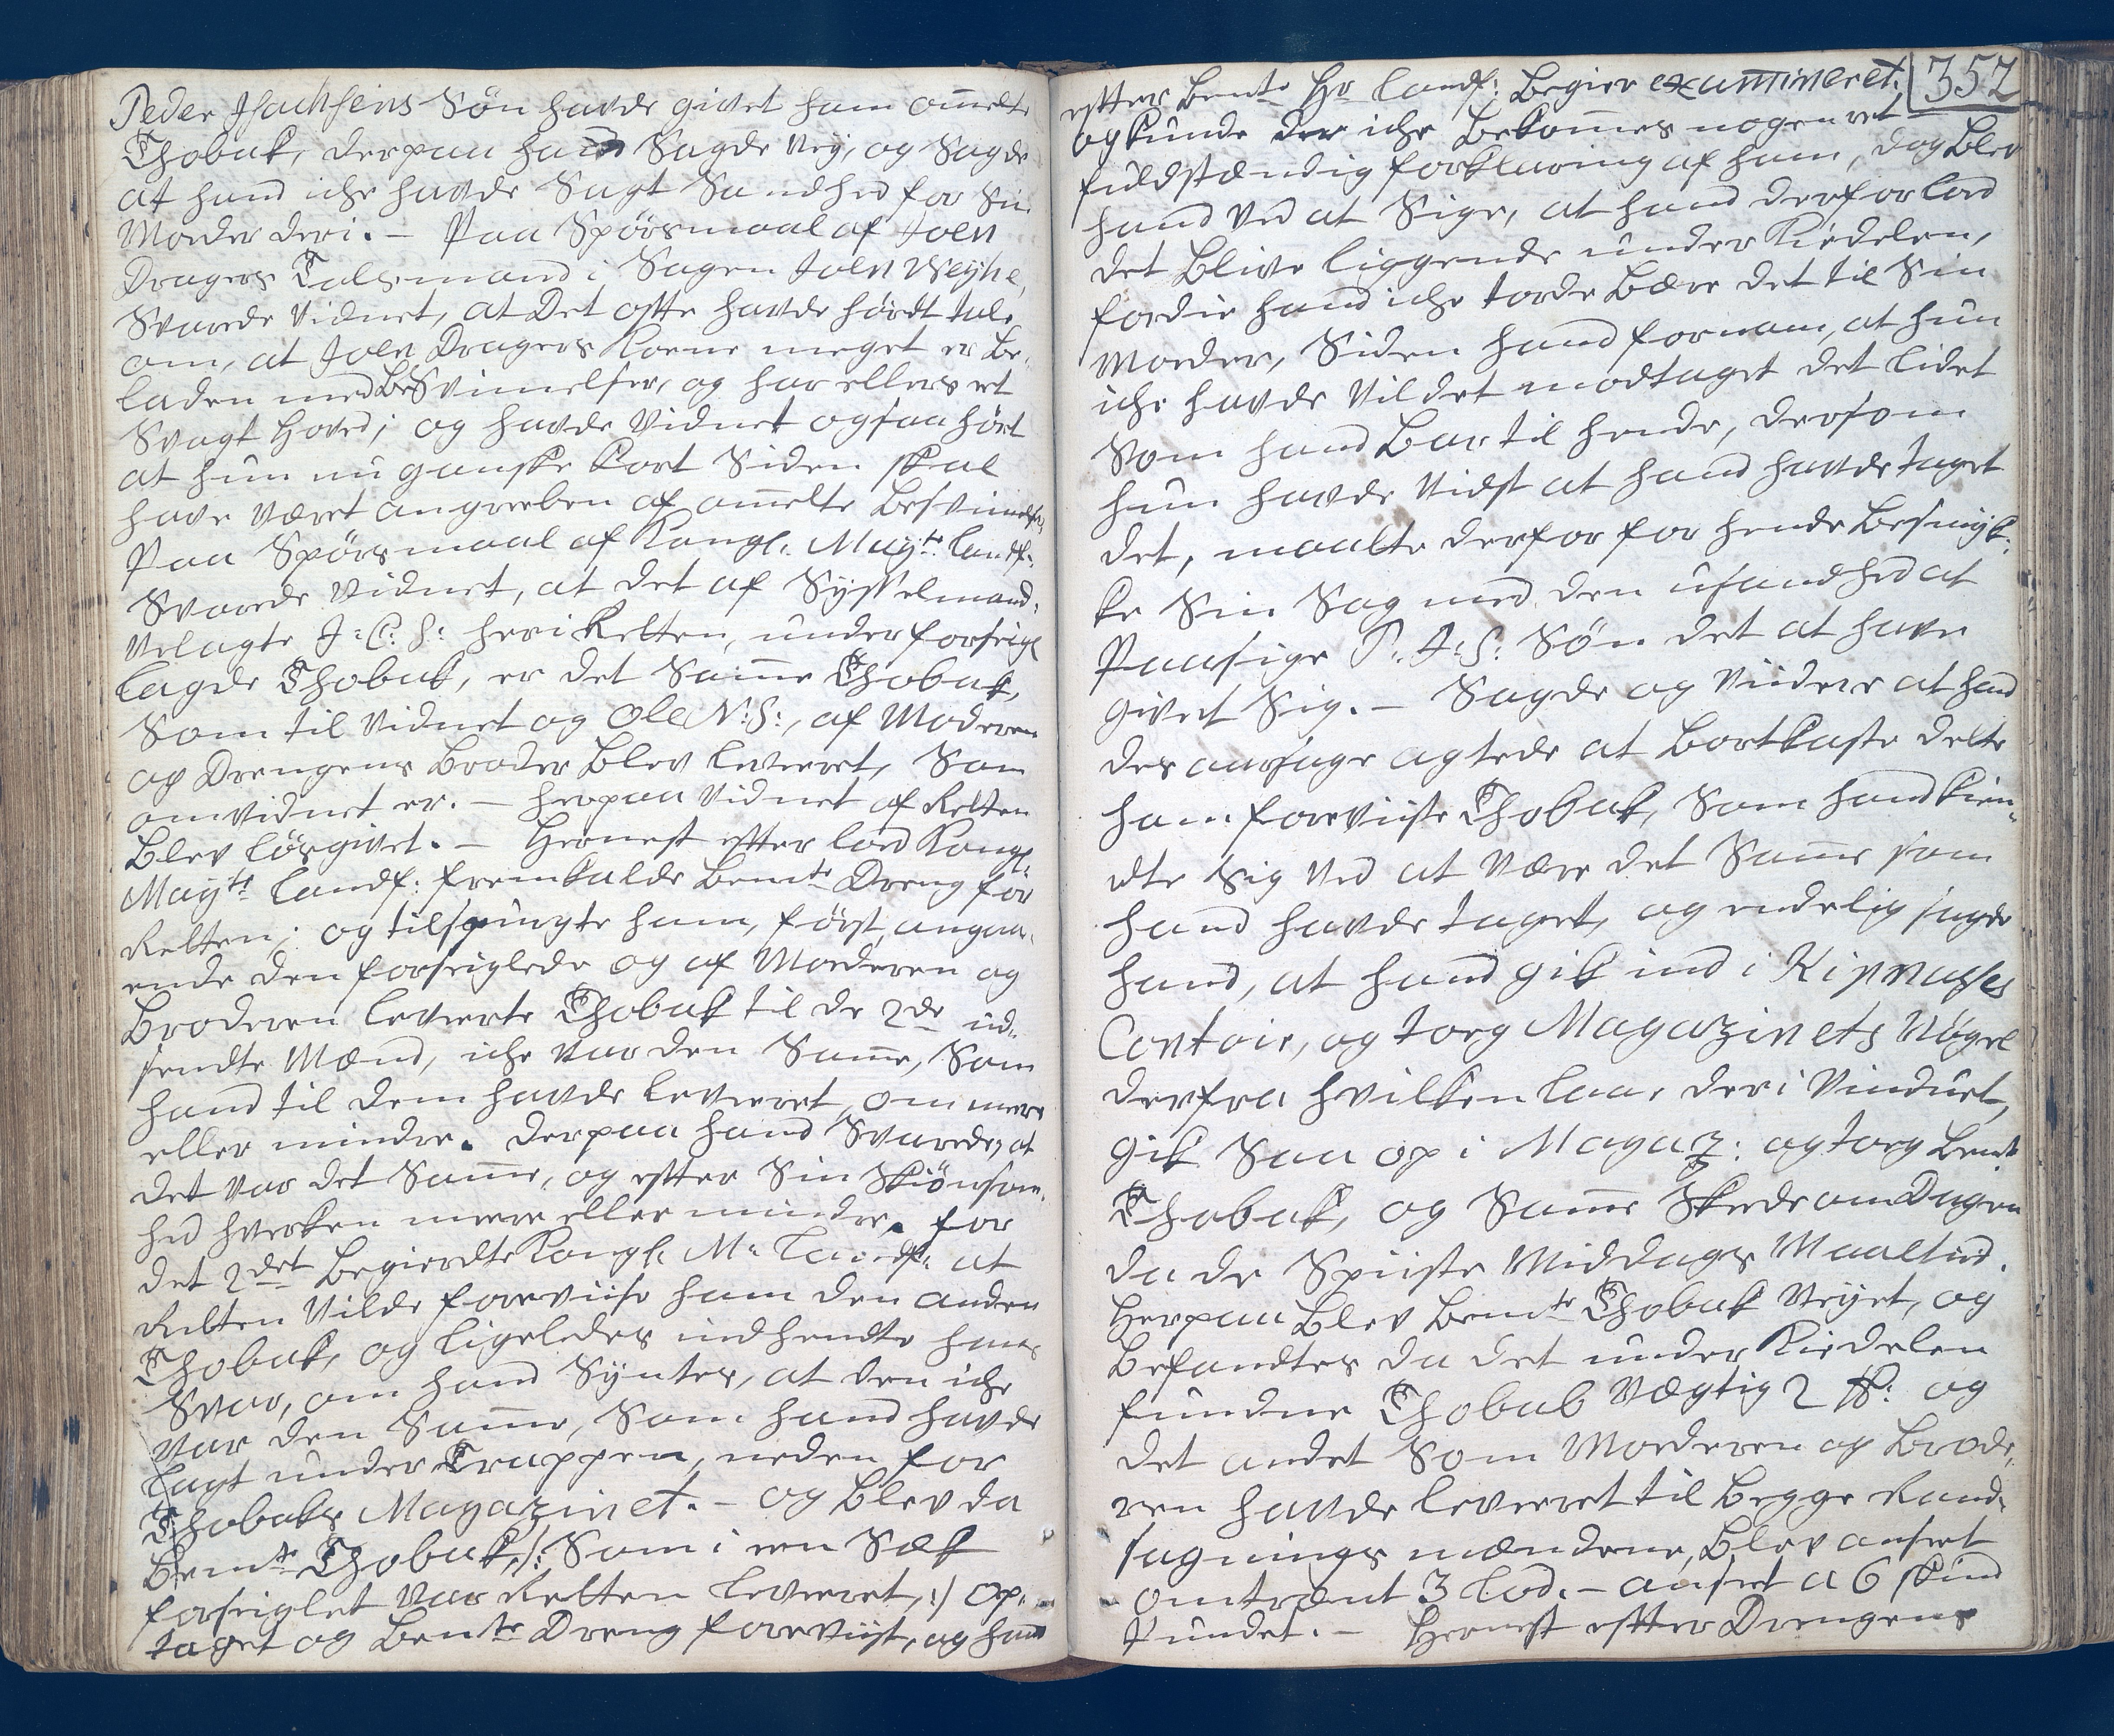 Peder Isachsens Søn havde givet ham omelte
Thobak, derpaa hand Sagde Ney, og Sagde
at hand iche havde Sagt Sandhed for Sin
Moder deri. — Paa Spørsmaal af Joen
Dragers Talsmand i Sagen Joen Weyhe,
Svarede Vidnet, at Det ofte havde hørdt tale
om, at Joen Dragers Kone meget er be-
laden med Besvimelser, og har ellers et
Svagt Hoved; og havde Vidnet ogsaa hørt
at hun nu ganske kort Siden skal
have været angreben af omelte Besvimelse,
Paa Spørsmaal af Kongl. Mayts. Landf:
Svarede Vidnet, at det af Sysselmand
Velagte J: C: S: her i Retten, under forseigl
lagde Thobak, er det Same Thobak,
Som til Vidnet og Ole N: S:, af Moderen
og Drengens Broder Blev leveret, Som
omvidnet er. — herpaa Vidnet af Retten
Blev løsgivet. — Hernest efter lod Kongl.
Mayts Landf: fremkalde Bemte Dreng for
Retten; og tilspurgte ham, først, angaa-
ende den forseiglede og af Moderen og
Broderen leverte Thobak til de 2de ud-
sendte Mænd, iche var den Same, Som
hand til dem havde leveret, om mere
eller mindre. derpaa hand Svarede, at
det var det Same, og efter Sin Skiønsom-
hed hverken mere eller mindre. for
det 2det begierdte Kongl. M: Landf: at
Retten Vilde foreviise ham den anden
Thobak, og ligeledes indhendte hans
Svar, om hand Syntes, at den iche
var den Same, Som hand havde
lagt under Trappen, neden for
Thobaks Magazinet. — og Blev da
Bemte Thobak, /: Som i een Sæk
forseiglet var Retten leveret, :/ op-
taget og Bemte Dreng foreviist, og hand
352
efter Bemte Hr Landf: Begier examineret.
og kunde der iche bekomes nogen ret
fuldstændig forklaring af ham, dog Blev
hand Ved at Sige, at hand derfor lod
det Blive liggende under Kiedelen,
fordi hand iche torde Bære det til Sin
Moder, Siden hand fornam, at hun
iche havde Vildet modtaget det lidet
Som hand Bar til hende, dersom
hun havde Vidst at hand havde taget
det, maatte derfor for hende Besmyk-
ke Sin Sag med den usandhed at
Paasige P: J: S: Søn det at have
givet Sig. — Sagde og Viidere at hand
desaarsage agtede at Bortkaste dette
ham foreviiste Thobak, Som hand kien-
dte Sig Ved at Være det Same som
hand havde taget, og endelig sagde
hand, at hand gik ind i Kipnasses
Contoir, og torg Magazinets Nøgel
derfra hvilken laae der i Vinduet,
gik Saa op i Magaz: og torg Bemte
Thobak, og Same Skede om Dagen
da de Spiiste Middags Maaltid.
Herpaa Blev Bemte Thobak Veyet, og
befandtes da det under Kiedelen
fundne Thobak Vægtig 2 ℔: og
det andet Som Moderen og Brode-
ren havde leveret til Begge Rand-
sagnings mændene, Blev anseet
omtrent 3 Lod. — anseet a 6 skind
Pundet. — Hernest efter Drengens